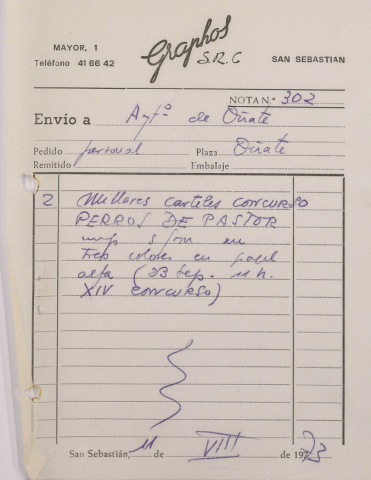 MAYOR, 1
Teléfono 41 66 42
Graphos
S.R.C
SAN SEBASTIAN
NOTA N.º 302
Envío a Aytº de Oñate
Pedido personal Plaza Oñate
Remitido Embalaje
2 Millares carteles CONCURSO
PERROS DE PASTOR
imp s/ fon en
Tres colores en papel
alfa (23 Sep. 11 h.
XIV CONCURSO)
San Sebastián, 11 de VIII de 1973